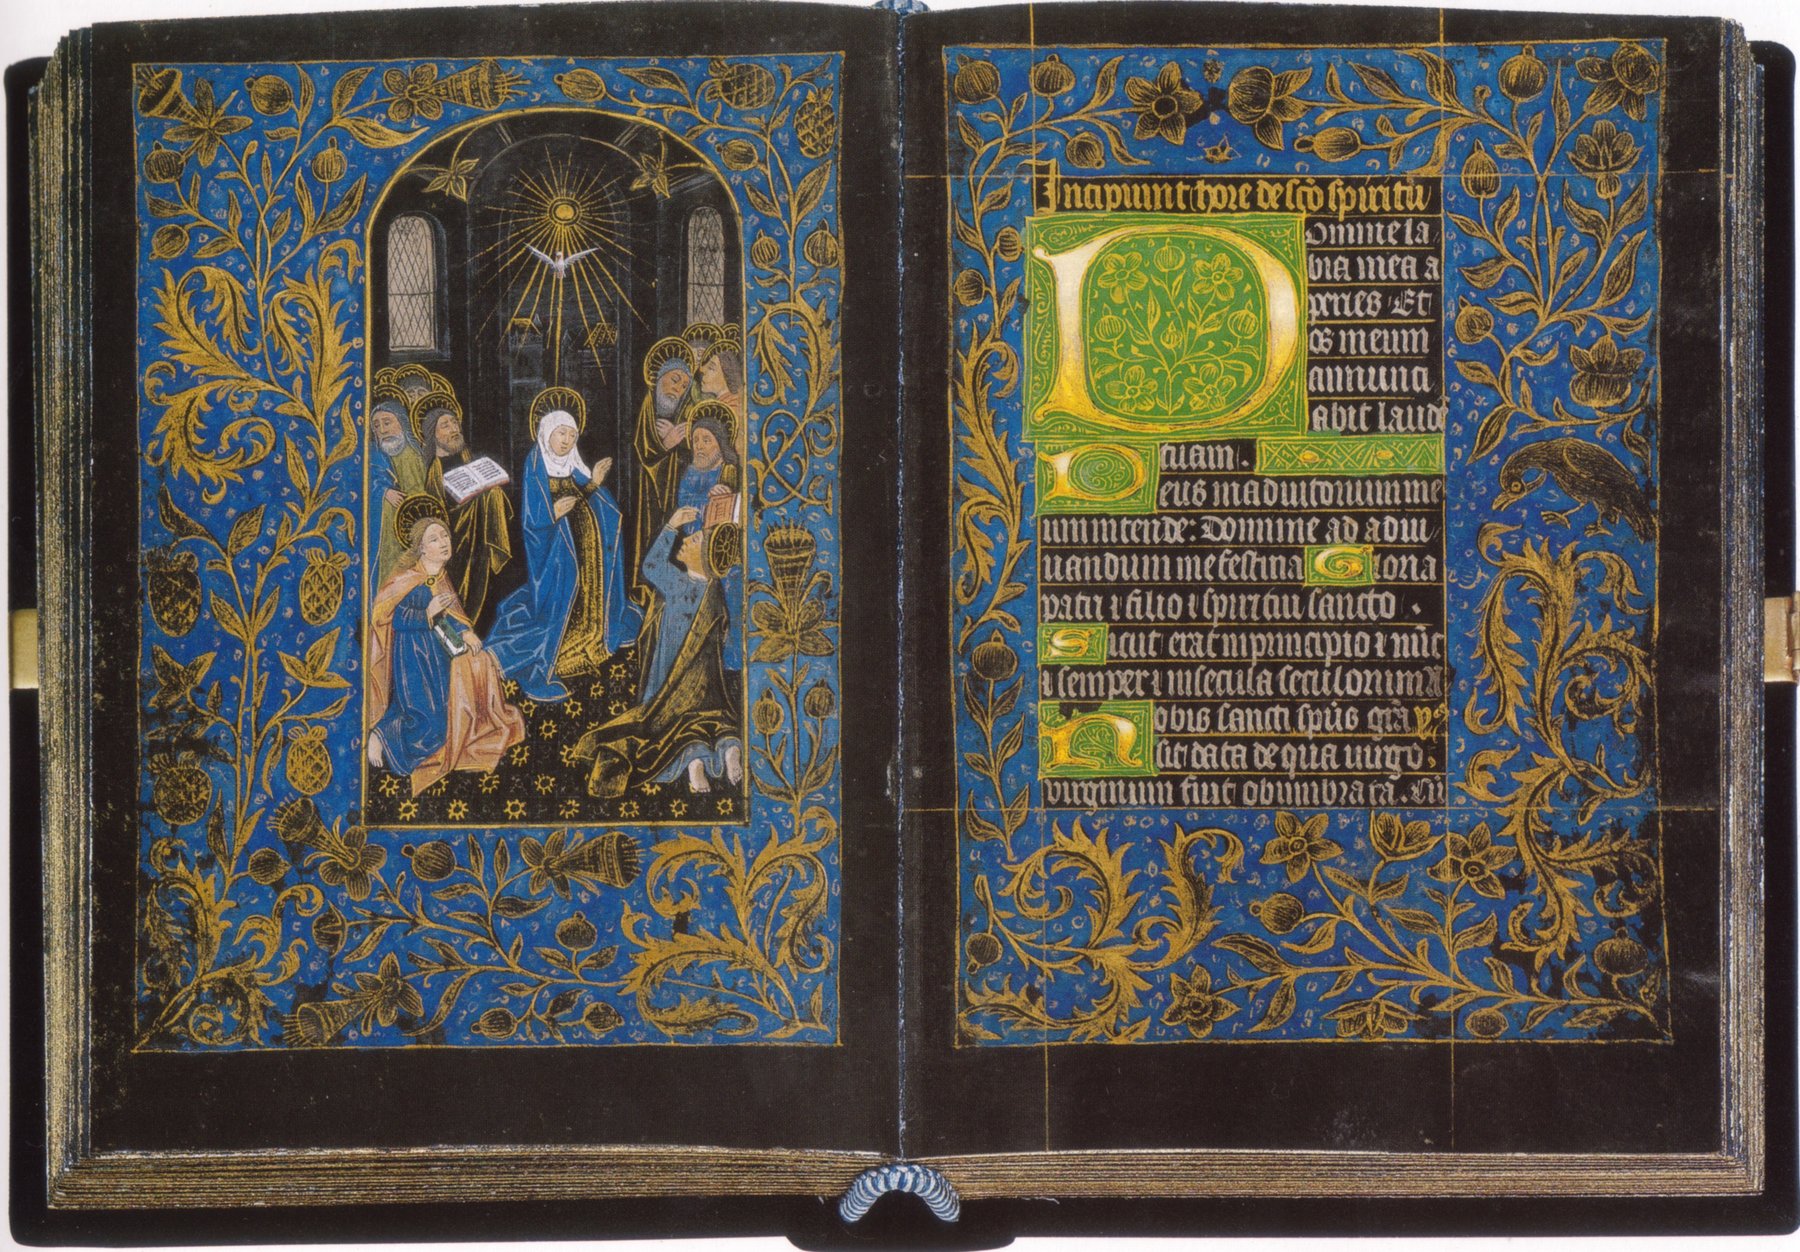 Incipiunt hore de sco spiritu
Domine la
bia mea a
peries · Et
os meum
annunci
abit laude
tuam ·
Deus in adiutorium me
um intende: Domine ad adiu
uandum me festina Gloria
patri ⁊ filio ⁊ spiritui sancto ·
Sicut erat in principio ⁊ nūc
⁊ semper ⁊ in secula seculorum A
Nobis sancti spūs grā
sit data de qua uirgo
virginum fuit obumbrata · Cū